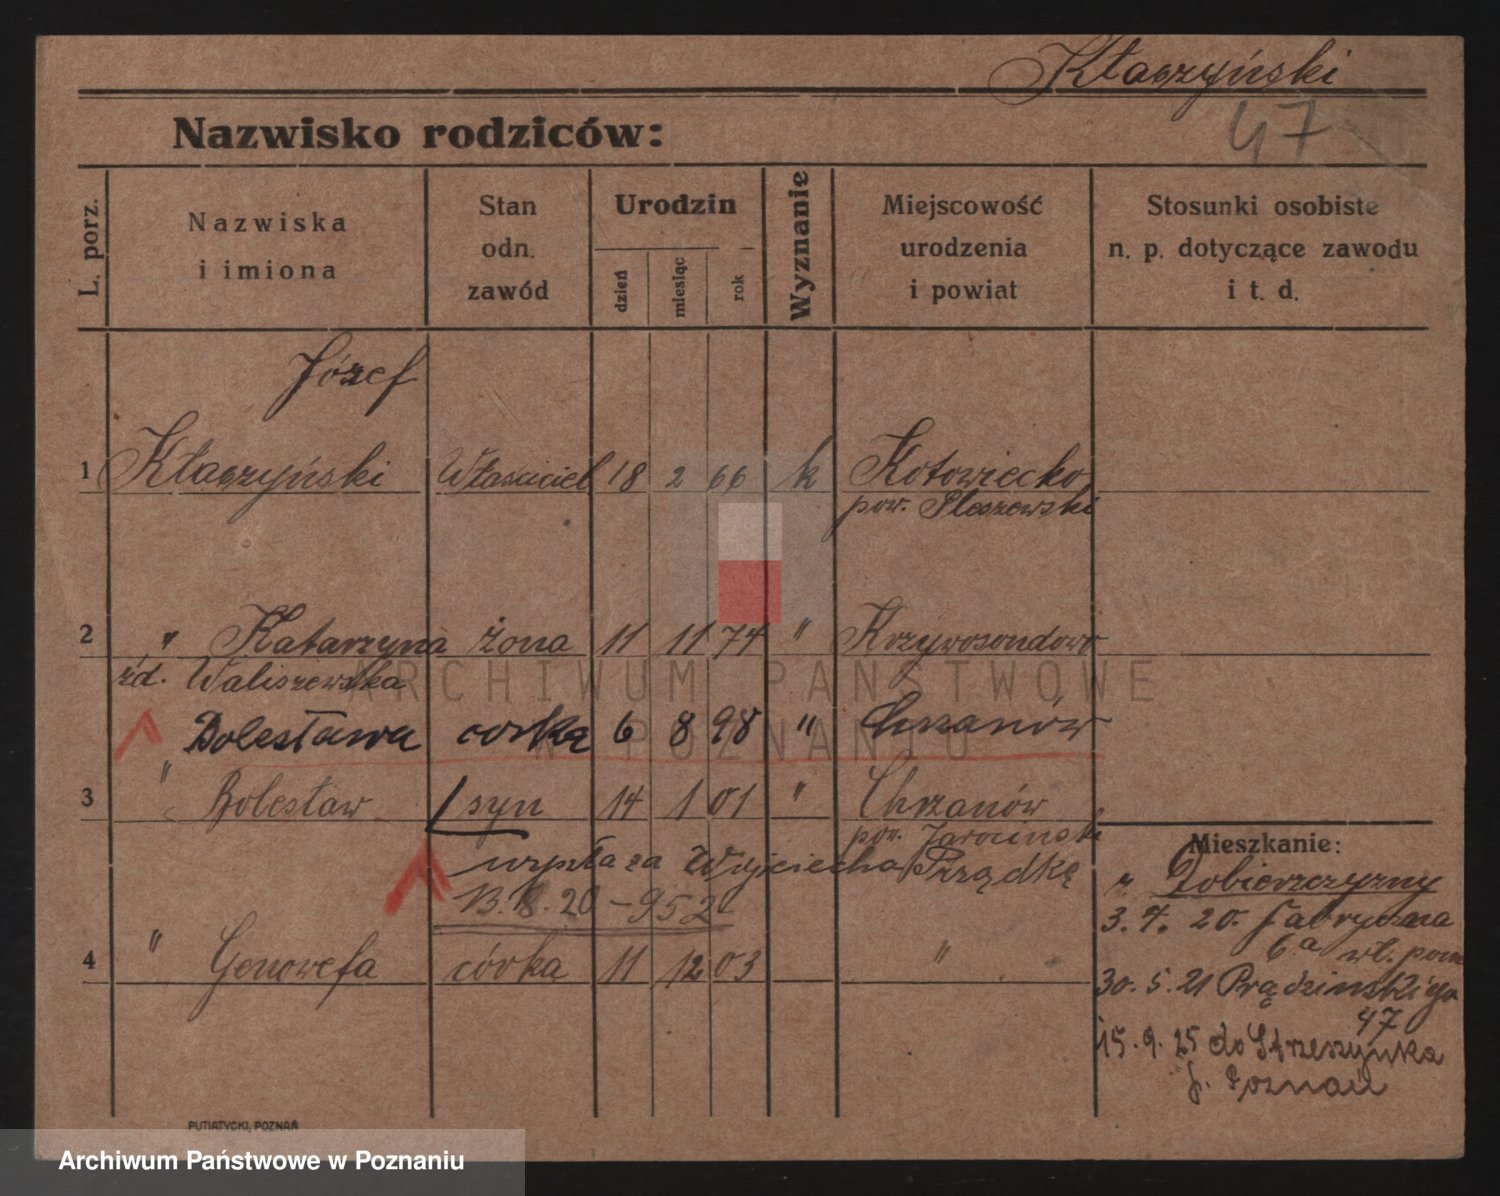 Kłaczyński
47
Nazwisko rodziców:
L. porz.
Nazwiska
i imiona
Stan
odn.
zawód
Urodzin
dzień
miesiąc
rok
Wyznanie
Miejscowość
urodzenia
i powiat
Stosunki osobiste
n. p. dotyczące zawodu
i t. d.
Józef
1 Kłaczyński Właściciel 18 2 66 k Kotowiecko
pow. Pleszewski
2 " Katarzyna żona 11 11 74 " Krzywosondowo
żd. Waliszewska
Bolesława córka 6 8 98 " Chrzanów
3 " Bolesław syn 14 1 01 " Chrzanów
pow. Jarociński
Wojciecha Prządkę
B. 8. 20 – 952
4 " Genowefa córka 11 12 03 "
Mieszkanie:
z Dobierzczyzny
3. 7. 20. Fabryczna
6a wł. pom
30. 5. 21 Prądzinskiego
47
15. 9. 25 do Strzeszynka
p. Poznań
PUTIATYCKI, POZNAŃ
ARCHIWUM PAŃSTWOWE
W POZNANIU
Archiwum Państwowe w Poznaniu